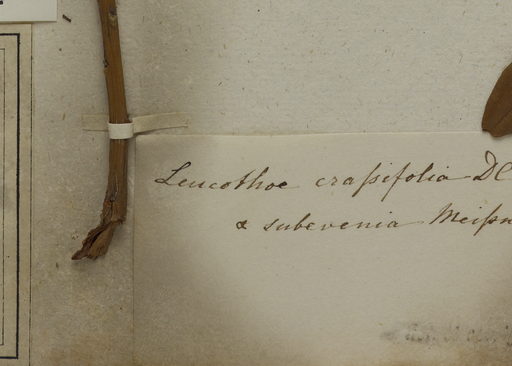 Leucothoe craſsifolia DC
α subevenia Meiſsn